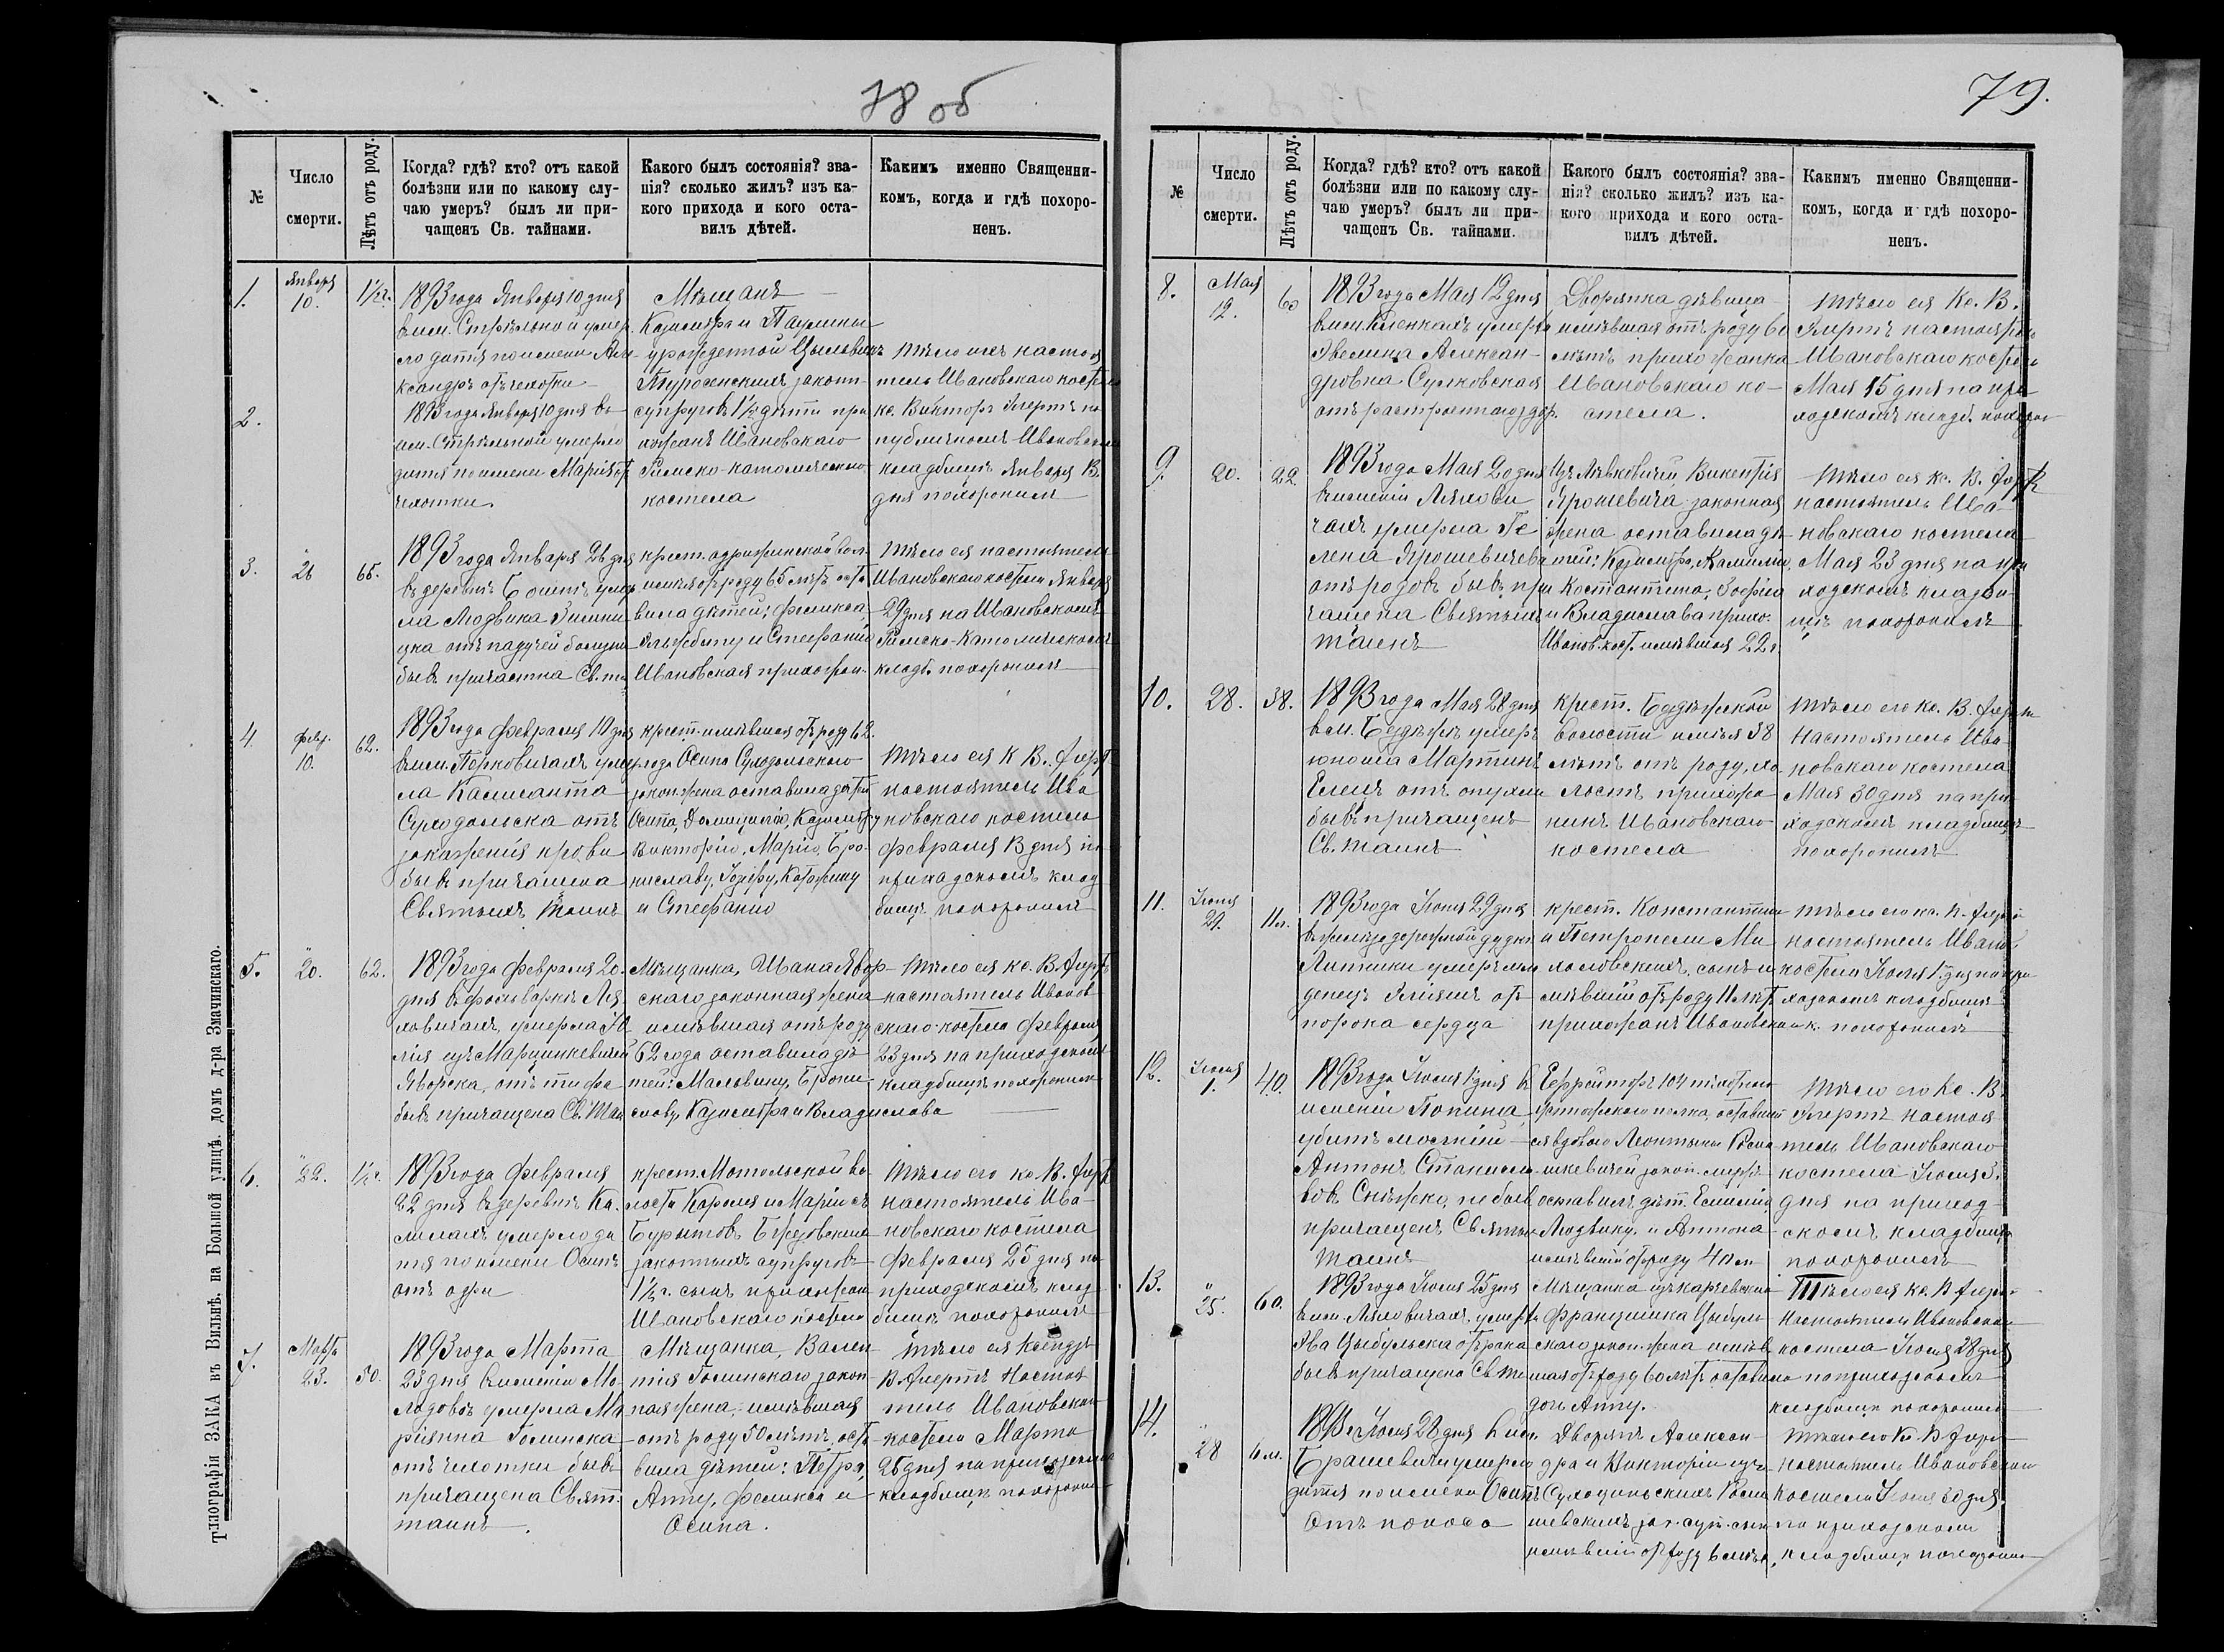 78 об
№
Число
смерти.
Лѣтъ отъ роду.
Когда? гдѣ? кто? отъ какой
болѣзни или по какому слу-
чаю умеръ? былъ ли при-
чащенъ Св. тайнами.
Какого былъ состоянія? зва-
нія? сколько жилъ? изъ ка-
кого прихода и кого оста-
вилъ дѣтей.
Какимъ именно Священни-
комъ, когда и гдѣ похоро-
ненъ.
1.
Января
10.
1½ г.
1893 года Января 10 дня
въ им. Стрѣльной умер
ло дитя по имени Але-
ксандръ отъ чахотки
Мѣщанъ
Казиміра и Паулины
урожденной
законн-
супруговъ 1½ г дѣти при
хожанъ Ивановскаго
Римско-католическаго
костела
Тѣло ихъ настоя
тель Ивановскаго костела
кс. Викторъ на
публичномъ Ивановскомъ
кладбищѣ Января 13
дня похоронилъ
2.
1893 года Января 10 дня въ
им. Стрѣльной умерло
дитя по имени Марія отъ
чахотки
3.
26
65.
1893 года Января 26 дня
въ деревнѣ умер
ла Людвика
отъ падучей болѣзни
бывъ причастна Св. та
крест. одрижинской вол.
имѣя отъ роду 65 лѣтъ оста
вила дѣтей: Феликса,
Эльжбету и Стефанію
Ивановская прихожан.
Тѣло ея настоятель
Ивановскаго костела Января
29 дня на Ивановскомъ
Римско-Католическомъ
кладб. похоронилъ
4.
февр.
10.
62.
1893 года Февраля 10 дня
въ им. Перковичахъ умер
ла Калиста
Суходольска отъ
зараженія крови
бывъ причащена
Святыхъ Таинъ
крест. имѣвшая отъ роду 62
года Осипа Суходольскаго
закон. жена оставила дѣтей
Осипа, Доминицелю, Казиміру
Викторію, Марію, Бро-
ниславу, Юзефу, Катажину
и Стефанію
Тѣло ея К. В.
настоятель Ива
новскаго костела
февраля 13 дня на
приходскомъ клад
бищѣ похоронилъ
5.
20.
62.
1893 года Февраля 20.
дня въ фольваркѣ Ля
ховичахъ, умерла Ю
лія изъ Марцинкевичей
Яворска, отъ тифа
бывъ причащена Св. Таи
Мѣщанка, Ивана Явор-
скаго законная жена
имѣвшая отъ роду
62 года оставила дѣ
тей: Мальвину, Брони
славу, Казиміра и Владислава
Тѣло ея кс. В.
настоятель Иванов
скаго костела Февраля
23 дня на приходскомъ
кладбищѣ похоронилъ
6.
22.
1½ г.
1893 года Февраля
22 дня въ деревнѣ Ка-
лилахъ умерло ди
тя по имени Осипъ
отъ
крест. Мотольской во
лости Кароля и Маріи изъ
законныхъ супруговъ
1½ г. сынъ прихожан
Ивановскаго костела
Тѣло его кс. В.
настоятель Ива-
новскаго костела
Февраля 25 дня на
приходскомъ клад
бищѣ похоронилъ
7.
Марта
23.
50.
1893 года Марта
23 дня въ имѣніи Мо-
лодовѣ умерла Ма
ріянна Голинска
отъ чахотки бывъ
причащена Свят.
таинъ.
Мѣщанка, Вален-
тія Голинскаго закон
ная жена, имѣвшая
отъ роду 50 лѣтъ, оста
вила дѣтей: Петра,
Анну, Феликса и
Осипа.
Тѣло ея Ксендзъ
В. Настоя
тель Ивановскаго
костела Марта
25 дня на приходскомъ
кладбищѣ похоронилъ
Типографія ЗАКА въ Вильнѣ, на Большой улицѣ, домъ д-ра Змачинскаго.
79.
№
Число
смерти.
Лѣтъ отъ роду.
Когда? гдѣ? кто? отъ какой
болѣзни или по какому слу-
чаю умеръ? былъ ли при-
чащенъ Св. тайнами.
Какого былъ состоянія? зва-
нія? сколько жилъ? изъ ка-
кого прихода и кого оста-
вилъ дѣтей.
Какимъ именно Священни-
комъ, когда и гдѣ похоро-
ненъ.
8.
Мая
12.
60
1893 года Мая 12 дня
въ им. умерла
Эвелина Алексан-
дровна Сулковская
отъ растроеннаго здор.
Дворянка дѣвица
имѣвшая отъ роду 60
лѣтъ прихожанка
Ивановскаго ко-
стела.
Тѣло ея Кс. В.
настоятель
Ивановскаго костела
Мая 15 дня на при
ходскомъ кладб. похорон
9.
20.
22
1893 года Мая 20 дня
въ имѣніи Ляхови
чахъ умерла Ге
лена Ярошевичева
отъ родовъ бывъ при
чащена Святыхъ
таинъ
Изъ Левковичей Викентія
Ярошевича законная
жена оставила дѣ
тей: Казиміра, Камилію
Константина, Зофію
и Владислава прихо.
Иванов. кост. имѣвшая 22 г.
Тѣло ея кс. В.
настоятель Ива-
новскаго костела
Мая 23 дня на при
ходскомъ кладби
щѣ похоронилъ
10.
28.
38.
1893 года Мая 28 дня
въ м. Бездѣжѣ умеръ
юноша Мартинъ
отъ опухли
бывъ причащенъ
Св. таинъ
крест. Бездѣжской
волости имѣя 38
лѣтъ отъ роду, хо
лостъ прихожа
нинъ Ивановскаго
костела
Тѣло его кс. В.
настоятель Ива-
новскаго костела
Мая 30 дня на при
ходскомъ кладбищѣ
похоронилъ
11.
Іюня
29.
11 л.
1893 года Іюня 29 дня
въ желѣзодорожной будкѣ
умеръ мла
денецъ отъ
порока сердца
крест. Константина
и Петронели Ми
халовскихъ, сынъ и
мѣвшій отъ роду 11 лѣт.
прихожанъ Ивановскаго к.
Тѣло его кс. В.
настоятель Иванов.
костела Іюля 1 дня на при
ходскомъ кладбищѣ
похоронилъ
12.
Іюля
1.
40.
1893 года Іюля 1 дня въ
имѣніи Попина,
убитъ молніей
Антонъ Станисла
вовъ Снѣжко, не бывъ
причащенъ Святыхъ
таинъ
Ефрейторъ 104 пѣхотнаго
полка, оставив
ся вдовою
закон. супр.
оставилъ дѣт. Емилію
Людвику, и Антона
имѣвшій отъ роду 40 лѣ
Тѣло его Кс. В.
настоя
тель Ивановскаго
костела Іюля 3.
дня на приход-
скомъ кладбищѣ
похоронилъ
13.
25.
60.
1893 года Іюля 25 дня
въ им. Ляховичахъ, умерла
Ева Цыбульска отъ рака
бывъ причащена Св. та
Мѣщанка изъ
Францишка Цыбуль
скаго закон. жена имѣв
шая отъ роду 60 лѣтъ оставила
дочь Анну.
Тѣло ея кс. В
настоятель Ивановскаго
костела Іюля 28 дня
на приходскомъ
кладбищѣ похоронилъ
14.
28
6 м.
1893 г. Іюля 28 дня въ им.
Брашевичи умерло
дитя по имени Осипъ
отъ поноса
Дворянъ Алексан-
дра и Викторіи изъ
зак. суп. сын
имѣвшій отъ роду 6 мѣся
Тѣло его Кс. В
настоятель Ивановскаго
костела Іюля 30 дня
на приходскомъ
кладбищѣ похоронилъ